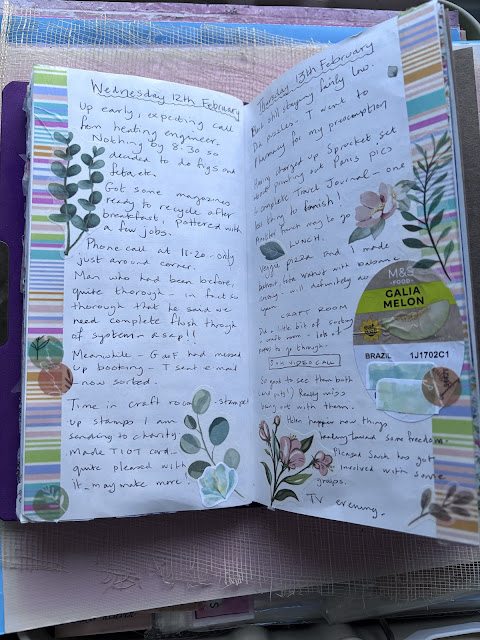 Wednesday 12th February
Up early, expecting call
from heating engineer.
Nothing by 8.30 so
decided to do figs and
feta etc.
Got some magazines
ready to recycle after
breakfast, pottered with
a few jobs.
Phone call at 11.20 - only
just around corner.
Man who had been before,
quite thorough - in fact so
thorough that he said we
need complete flush through
of system - asap!!
Meanwhile - had messed
up booking - I sent e mail
- now sorted.
Time in craft room - stamped
up stamps I am
sending to charity.
Made TIOT card -
quite pleased with
it - may make more!
Thursday 13th February
still staying fairly low.
Did puzzles. I went to
Pharmacy for my prescription
Having charged up Sprocket set
about printing out Paris pics
to complete Travel Journal - one
less thing to finish!
Another project may to go
LUNCH.
Veggie pizza and I made
walnut with balsamic
- will definitely do
again
CRAFT ROOM
Did little bit of sorting
craft room - lots of
to go through.
VIDEO CALL
So good to see them both
(and pets!) Really miss
being out with them.
Helen now things
heading toward some freedom.
Pleased Sarah has got
involved with some
groups.
TV evening.
M&S
FOOD
GALIA
MELON
BRAZIL 1J1702C1